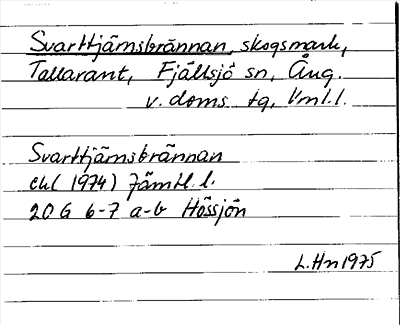 Svarttjärnsbrännan, skogsmark,
Tallarant, Fjällsjö sn, Ång.
v. doms. tg, Vml. l.
Svarttjärnsbrännan
ek (1974) Jämtl. l.
20 G 6-7 a-b Hössjön
L. Hn 1975